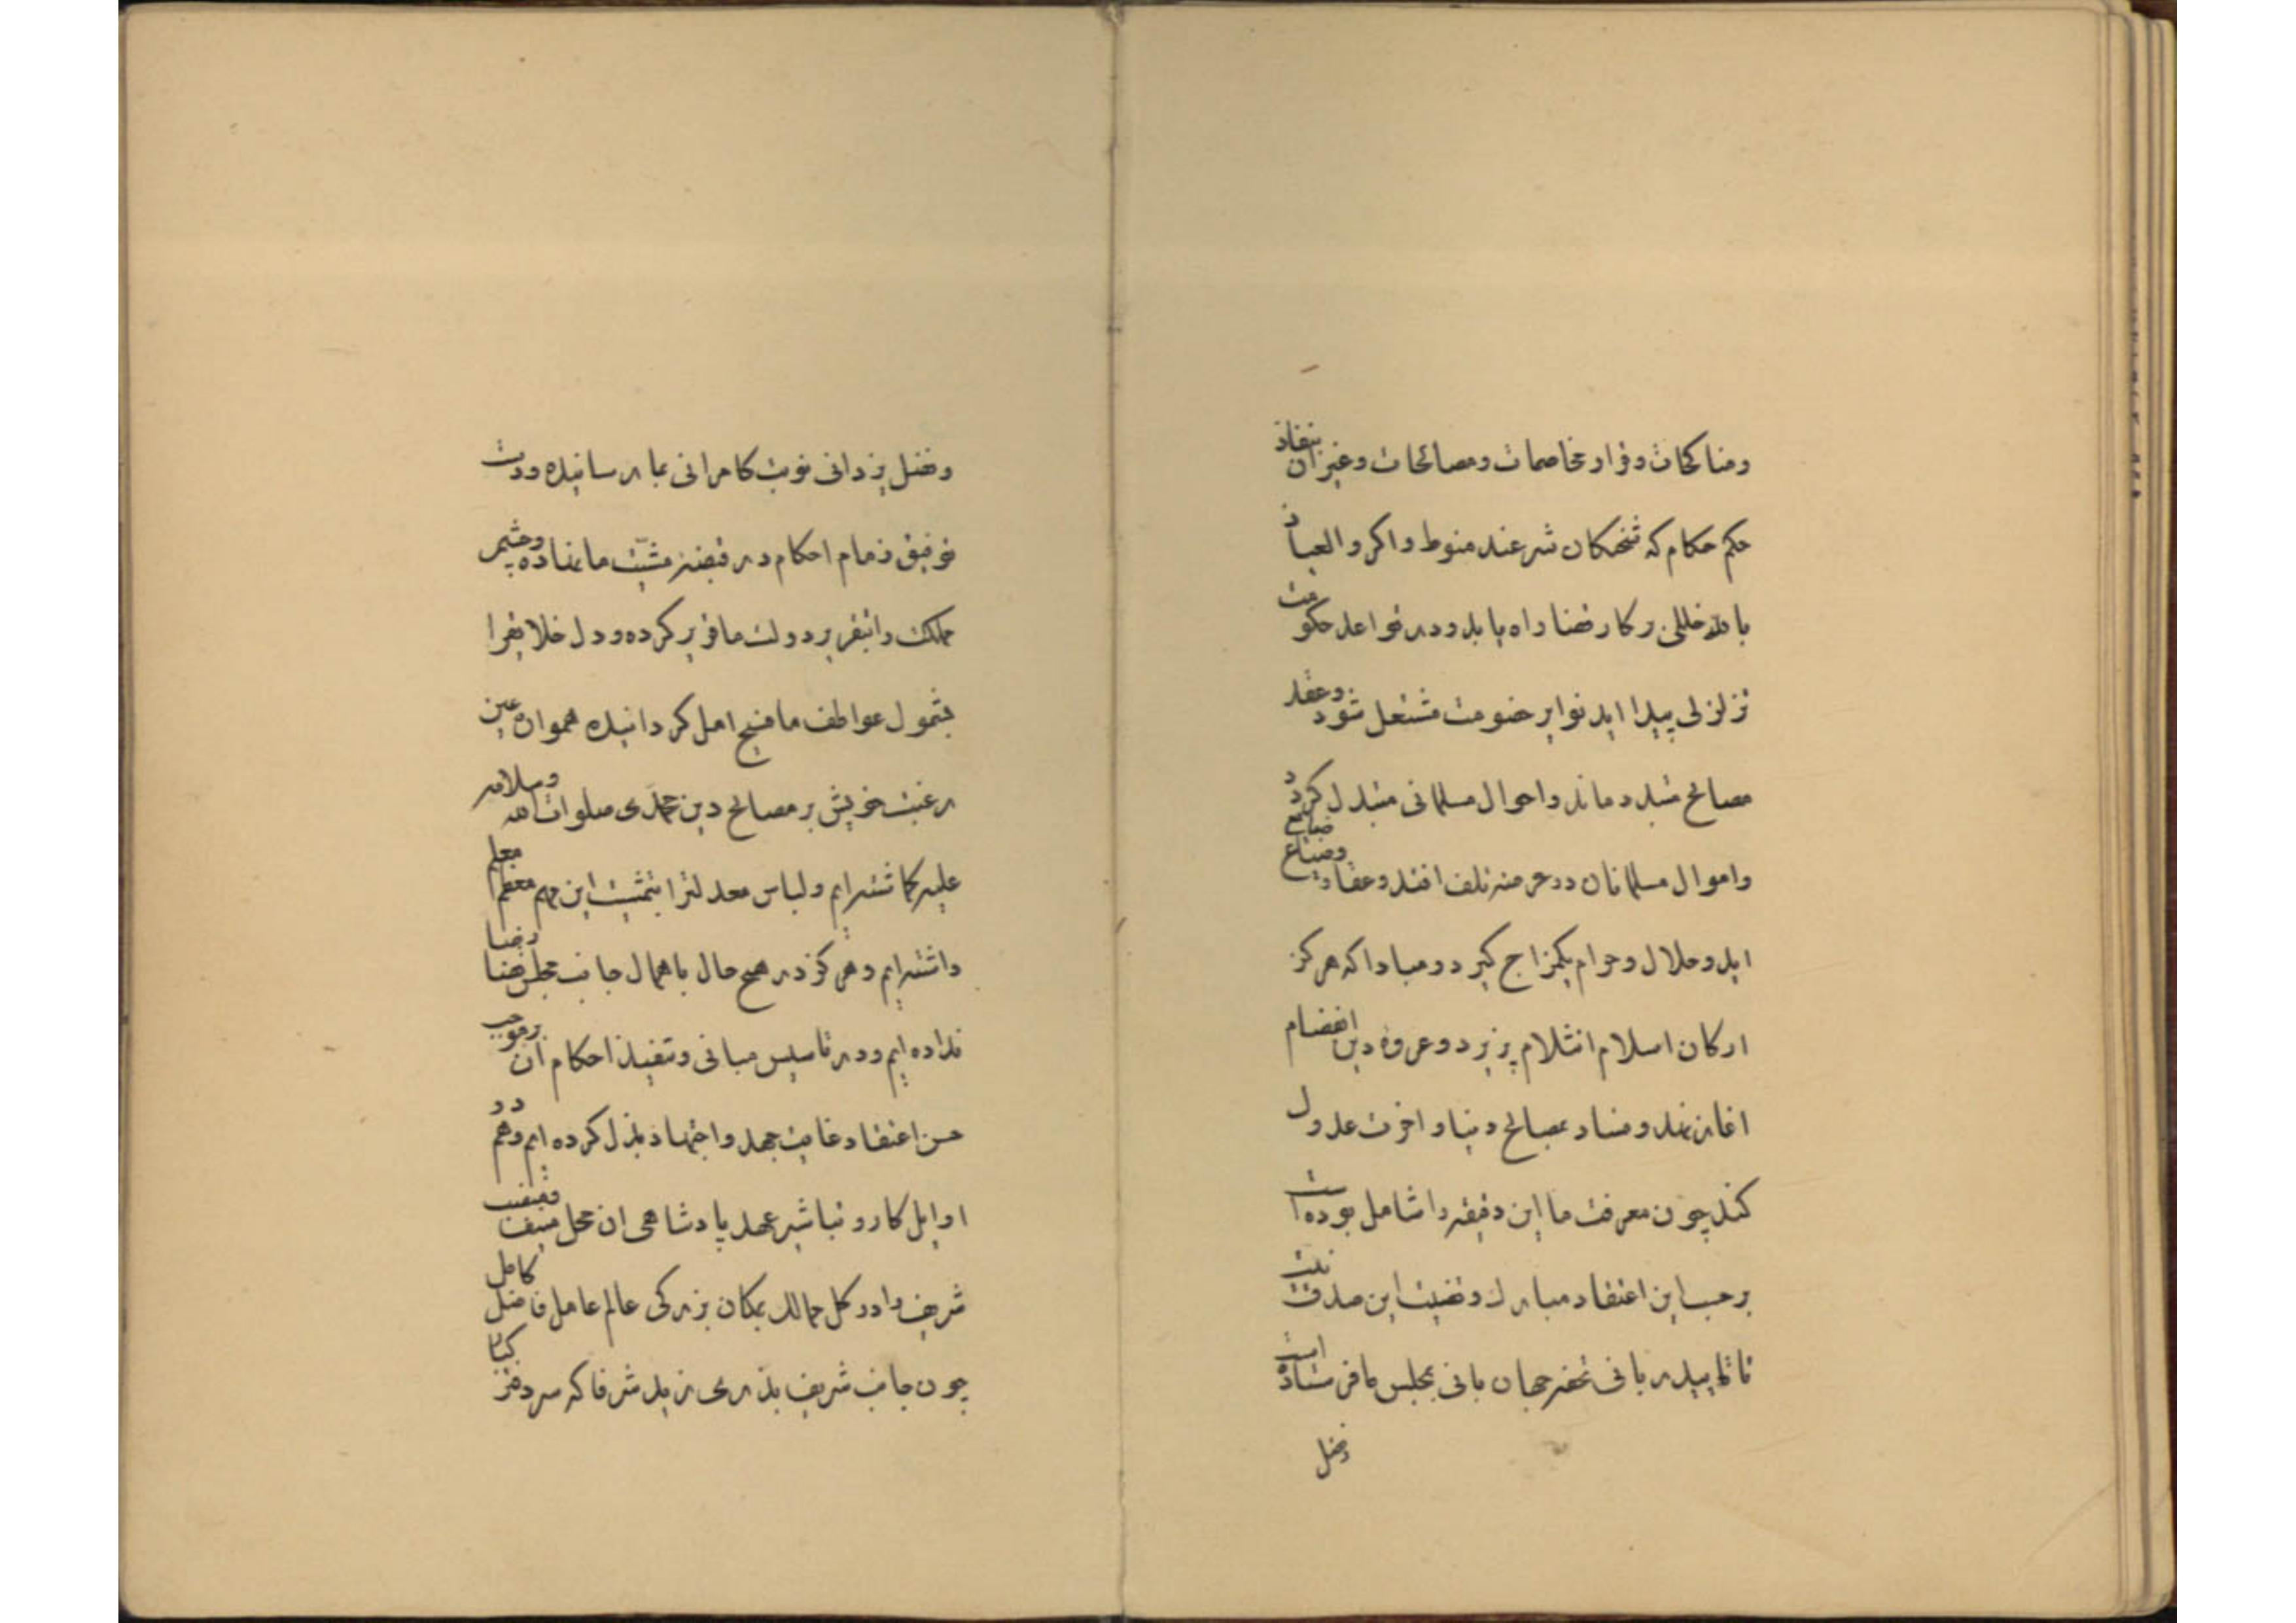 ومناکحات و قرار مخاصمات ومصالحات وغیر آن بنفاذ
حکم حکام که شحنکان شرعند منوط واکر والعیاذ
بالله خللی در کار قضا راه یابد ودر قواعد حکومت
تزلزلی پیدا اید نوایر خصومت مشتعل شود وعقد
مصالح متبدد ماند واحوال مسلمانی متبدل کردد
واموال مسلمانان در عرضه تلف افتد وعقار وضیاع ضایع
اید وحلال وحرام یکمزاج کیرد ومبادا که هرکز
ارکان اسلام انثلام پزیرد وعروه دین انفصام
اغاز نهد وفساد بمصالح دنیا واخرت عدول
کند چون معرفت ما این دقیقه را شامل بوده است
بر حسب این اعتقاد مبارک وقضیت این صدق نیت
تا تایید ربانی تخت جهان بانی بمجلس ما فرستاده است
وفضل
وفضل یزدانی نوبت کامرانی بما رسانیده ودست
توفیق زمام احکام در قبضه مشیت ما نهاده وچشم
مملکت را بتقریر دولت ما قریر کرده ودل خلایق را
بشمول عواطف ما فسیح امل کردانیده هموان عین
رغبت خویش بر مصالح دین محمدی صلوات الله وسلامه
علیه کماشته ایم ولباس معدلترا بتمشیت این مهم معظم معلم
داشته ایم وهرکز در هیچ حال باهمال جانب مجلس قضا رضا
نداده ایم ودر تاسیس مبانی وتنفیذ احکام آن بر موجب
حسن اعتقاد غایت جهد واجتهاد بذل کرده ایم وهم در
اوایل کار و تباشیر عهد پادشاهی ان محل منیف
شریف را در کل ممالک بمکان بزرکی عالم عامل فاضل کامل
چون جانب شریف بذری زید شرفا که سر دفتر